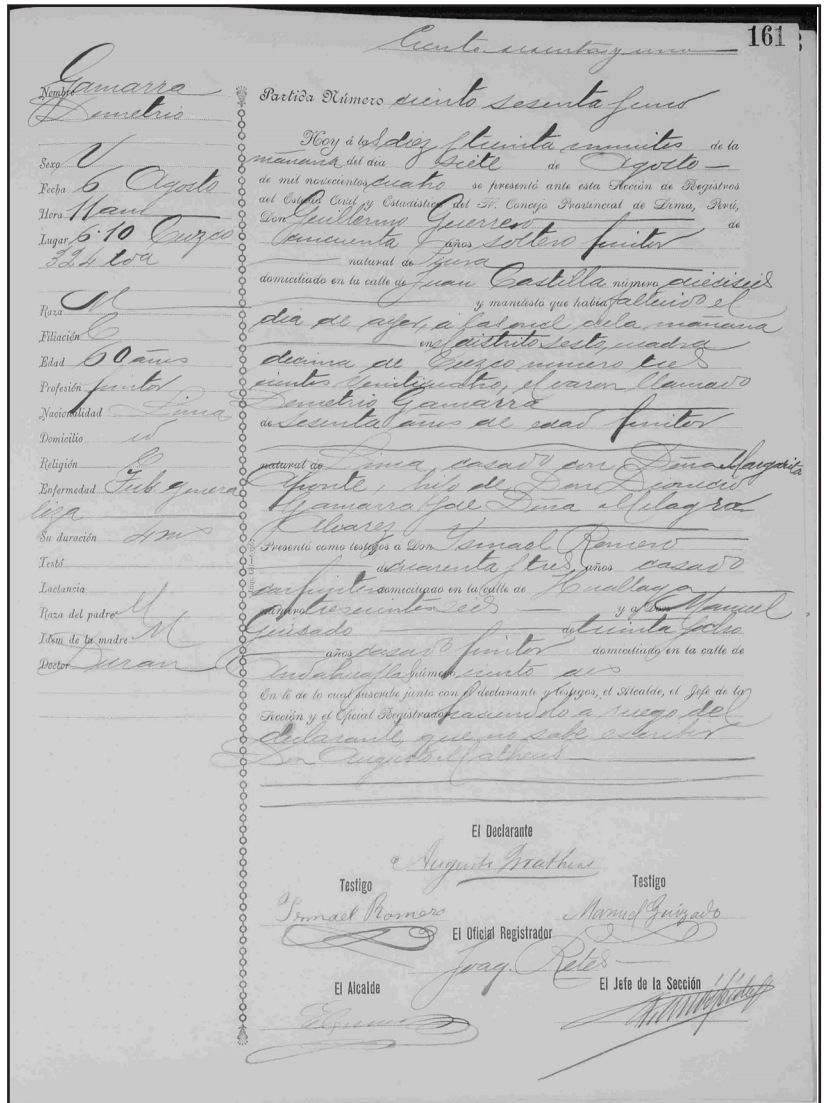 161
Ciento sesenta y uno
Nombre Gamarra
Demetrio
Sexo V
Fecha 6 Agosto
Hora 11 am
Lugar 6º 10 Cuzco
324
Raza M
Filiación
Edad 60 años
Profesión pintor
Nacionalidad Lima
Domicilio id
Religión C
Enfermedad Tub. genera
liza
Su duración 4 ms
Testó
Lactancia
Raza del padre M
Idem de la madre M
Doctor Duran
Partida Número ciento sesenta y uno
Hoy á las diez y treinta minutos de la
mañana del día siete de Agosto
de mil novecientos cuatro se presentó ante esta Sección de Registros
del Estado Civil y Estadística del H. Concejo Provincial de Lima, Perú,
Don Guillermo Guerrero de
cincuenta años soltero pintor
natural de Piura
domiciliado en la calle de Juan Castilla número dieciseis
y manifestó que había fallecido el
dia de ayer, á las once de la mañana
en distrito sesto, cuadra
decima de Cuzco numero tres
cientos veinticuatro, el varon llamado
Demetrio Gamarra
de sesenta anos de edad pintor
natural de Lima, casado con Doña Margarita
Ponte, hijo de Don Dionicio
Gamarra y de Doña Milagra
Alvarez
Presentó como testigos á Don Ysmael Romero
de cuarenta y tres años casado
carpintero domiciliado en la calle de Huallaga
número trescientos seis y a Don Manuel
Guisado de treinta y ocho
años casado pintor domiciliado en la calle de
Andahuaylas número ciento
En fé de lo cual suscribe junto con el declarante y testigos, el Alcalde, el Jefe de la
Sección y el Oficial Registrador haciendolo a ruego del
declarante, que no sabe escribir
Don Augusto Matheus
El Declarante
Augusto Matheus
Testigo
Testigo
Ysmael Romero
Manuel Guizado
El Oficial Registrador
Joaq. Retes
El Alcalde
El Jefe de la Sección